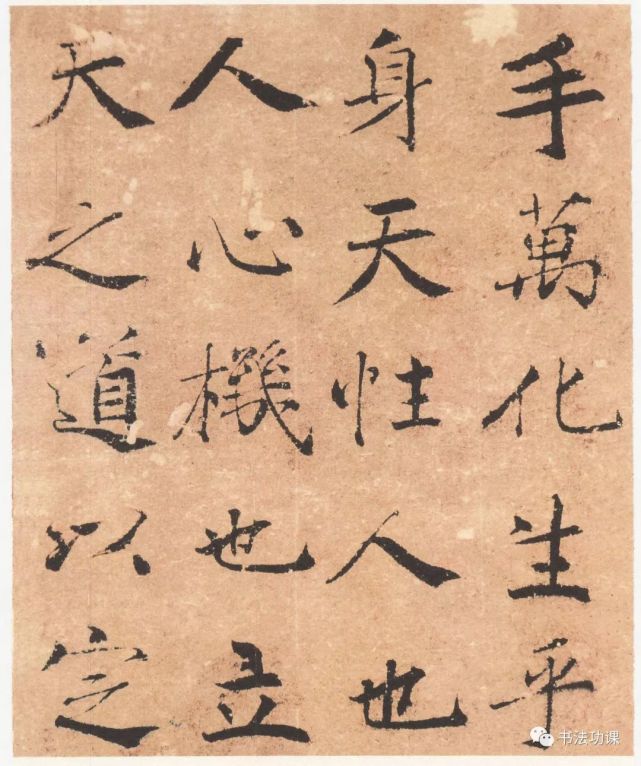 手萬化生乎
身天性人也
人心機也立
天之道以定
书法功课